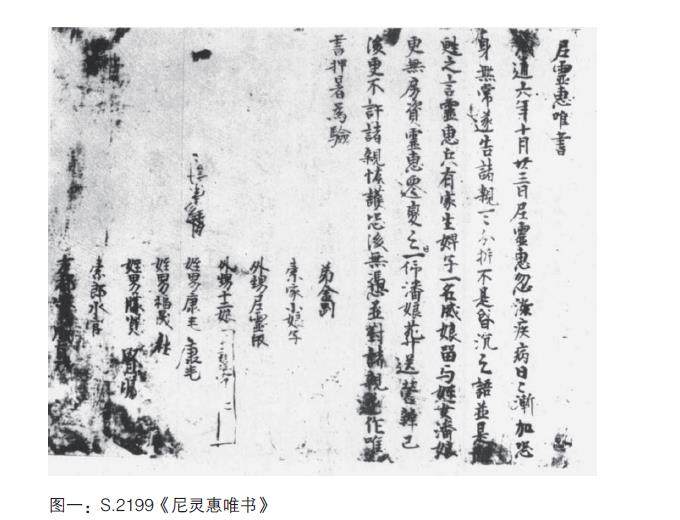 尼靈惠唯書
通六年十月廿三日尼靈惠忽染疾病日々漸加恐
身無常遂告諸親一一分析不是昏沉之語並是
甦之言靈惠只有家生婢子一名威娘留与姪女潘娘
更無房資靈惠遷變之日一仰潘娘葬送營辦已
後更不許諸親恡護恐後無憑並對諸親遂作唯
書押署為驗
弟金剛
索家小娘子
外甥尼靈皈
外甥十二娘
姪男康毛 康毛
姪男福晟
姪男勝賢 勝賢
索郎水官
图一：S.2199《尼灵惠唯书》